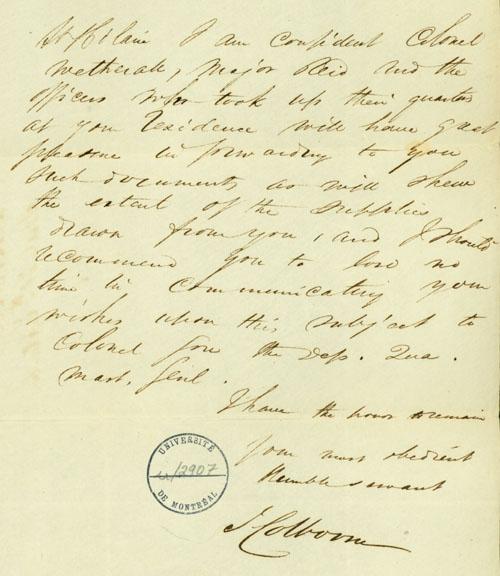 St Hilaire I am confident Colonel
Wetherall, Major Reid and the
officers who took up their quarters
at your residence will have great
pleasure in forwarding to you
such documents as will shew
the extent of the supplies
drawn from you, and I should
recommend you to lose no
time in communicating your
wishes upon this subject to
Colonel Gore the Dep. Qua.
Mast. Genl.
I have the honor to remain
your most obedient
Humble servant
J Colborne
UNIVERSITÉ
u/2907
DE MONTRÉAL